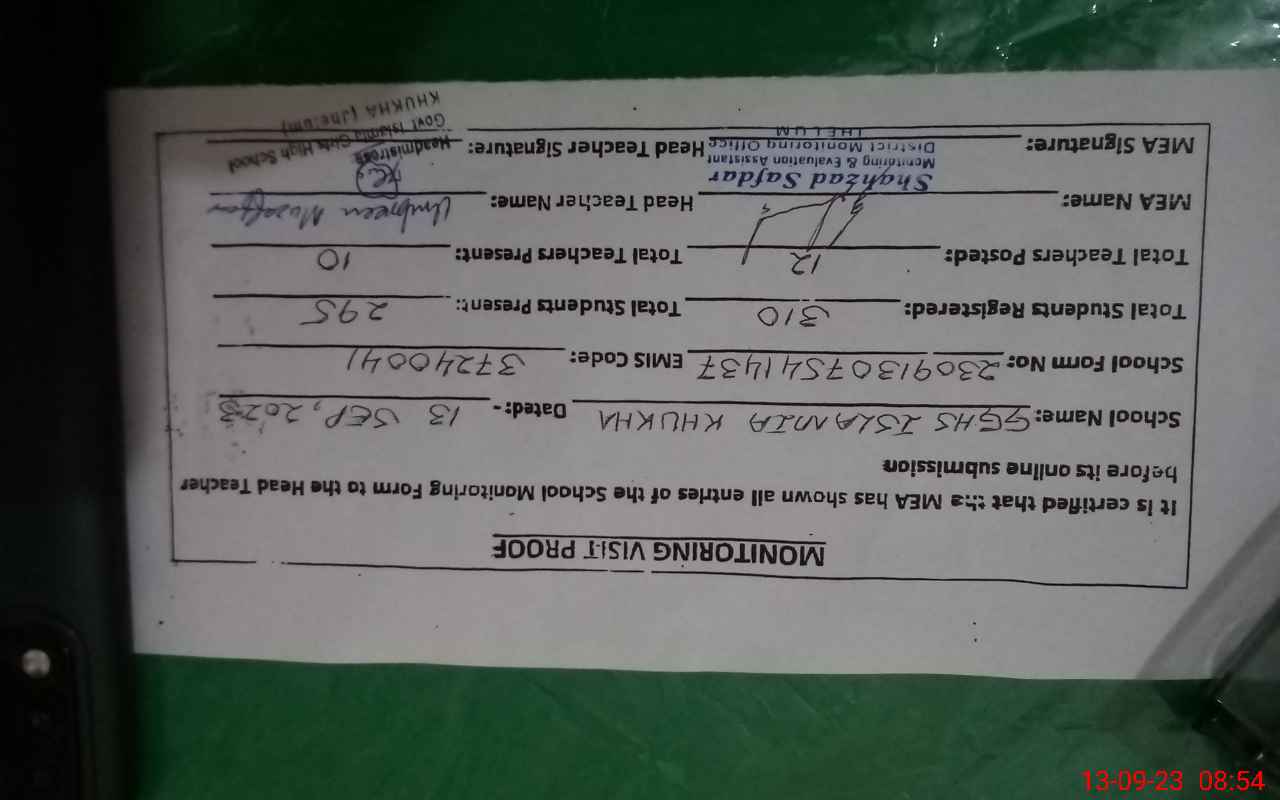 MONITORING VISIT PROOF
It is certified that the MEA has shown all entries of the School Monitoring Form to the Head Teacher
before its online submission
School Name: GGHS ISLAMIA KHUKHA Dated:- 13 SEP, 2023
School Form No: 230913075411437 EMIS Code: 37240041
Total Students Registered: 310 Total Students Present: 295
Total Teachers Posted: 12 Total Teachers Present: 10
MEA Name: Head Teacher Name: Umbreen
Shahzad Safdar
Monitoring & Evaluation Assistant
District Monitoring Office
JHELUM
MEA Signature: Head Teacher Signature:
Headmistress
Govt Islamia Girls High School
KHUKHA (Jhelum)
13-09-23 08:54